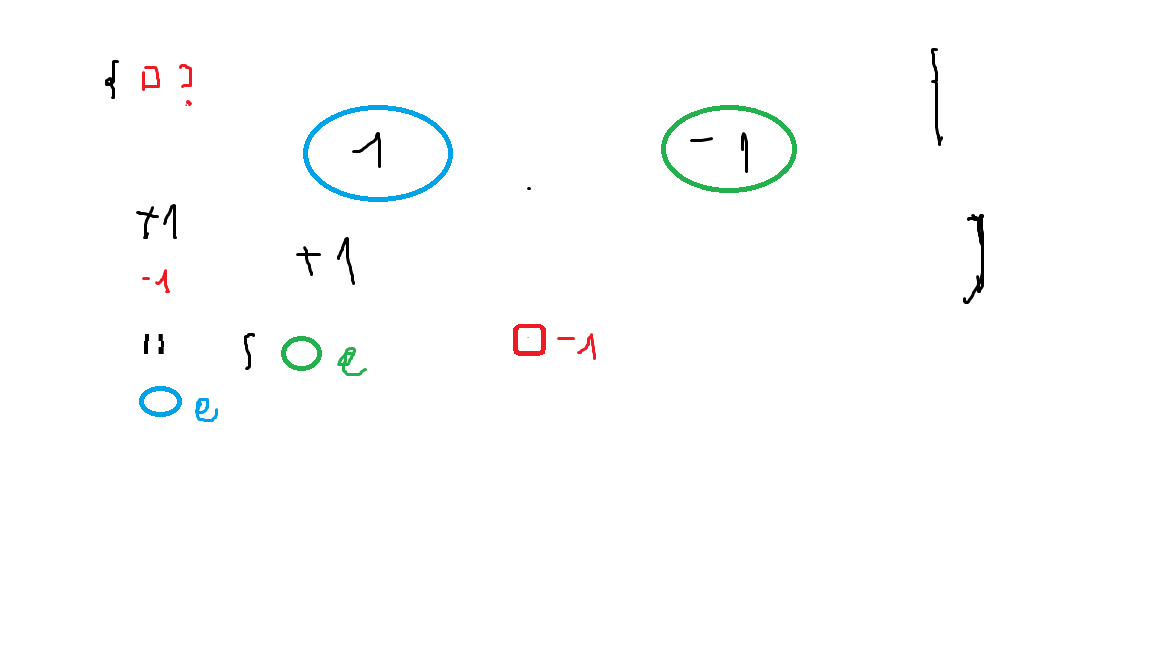 { □ ?
1 -1
+1
+1
-1
" e
□ -1
e